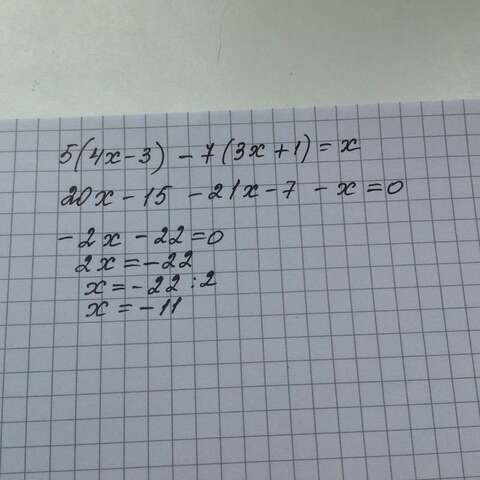 5(4x-3) -7(3x+1)=x
20x-15 -21x-7 -x=0
-2x -22=0
2x=-22
x=-22:2
x=-11